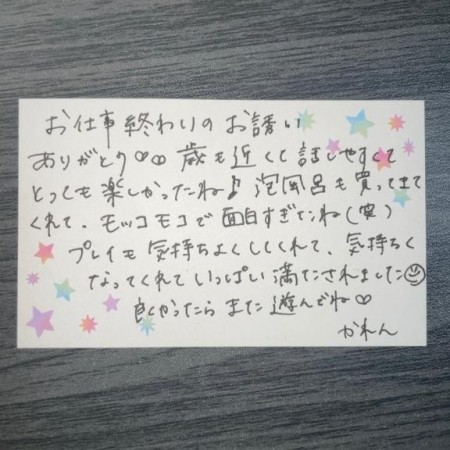 お仕事終わりのお誘い
ありがとう♡♡ 歳も近くて話しやすくて
とっても楽しかったね♪ 泡風呂も買ってきて
くれて、モッコモコで面白すぎたね(笑)
プレイも気持ちよくしてくれて、気持ちく
なってくれていっぱい満たされました☺
良かったらまた遊んでね♡
かれん